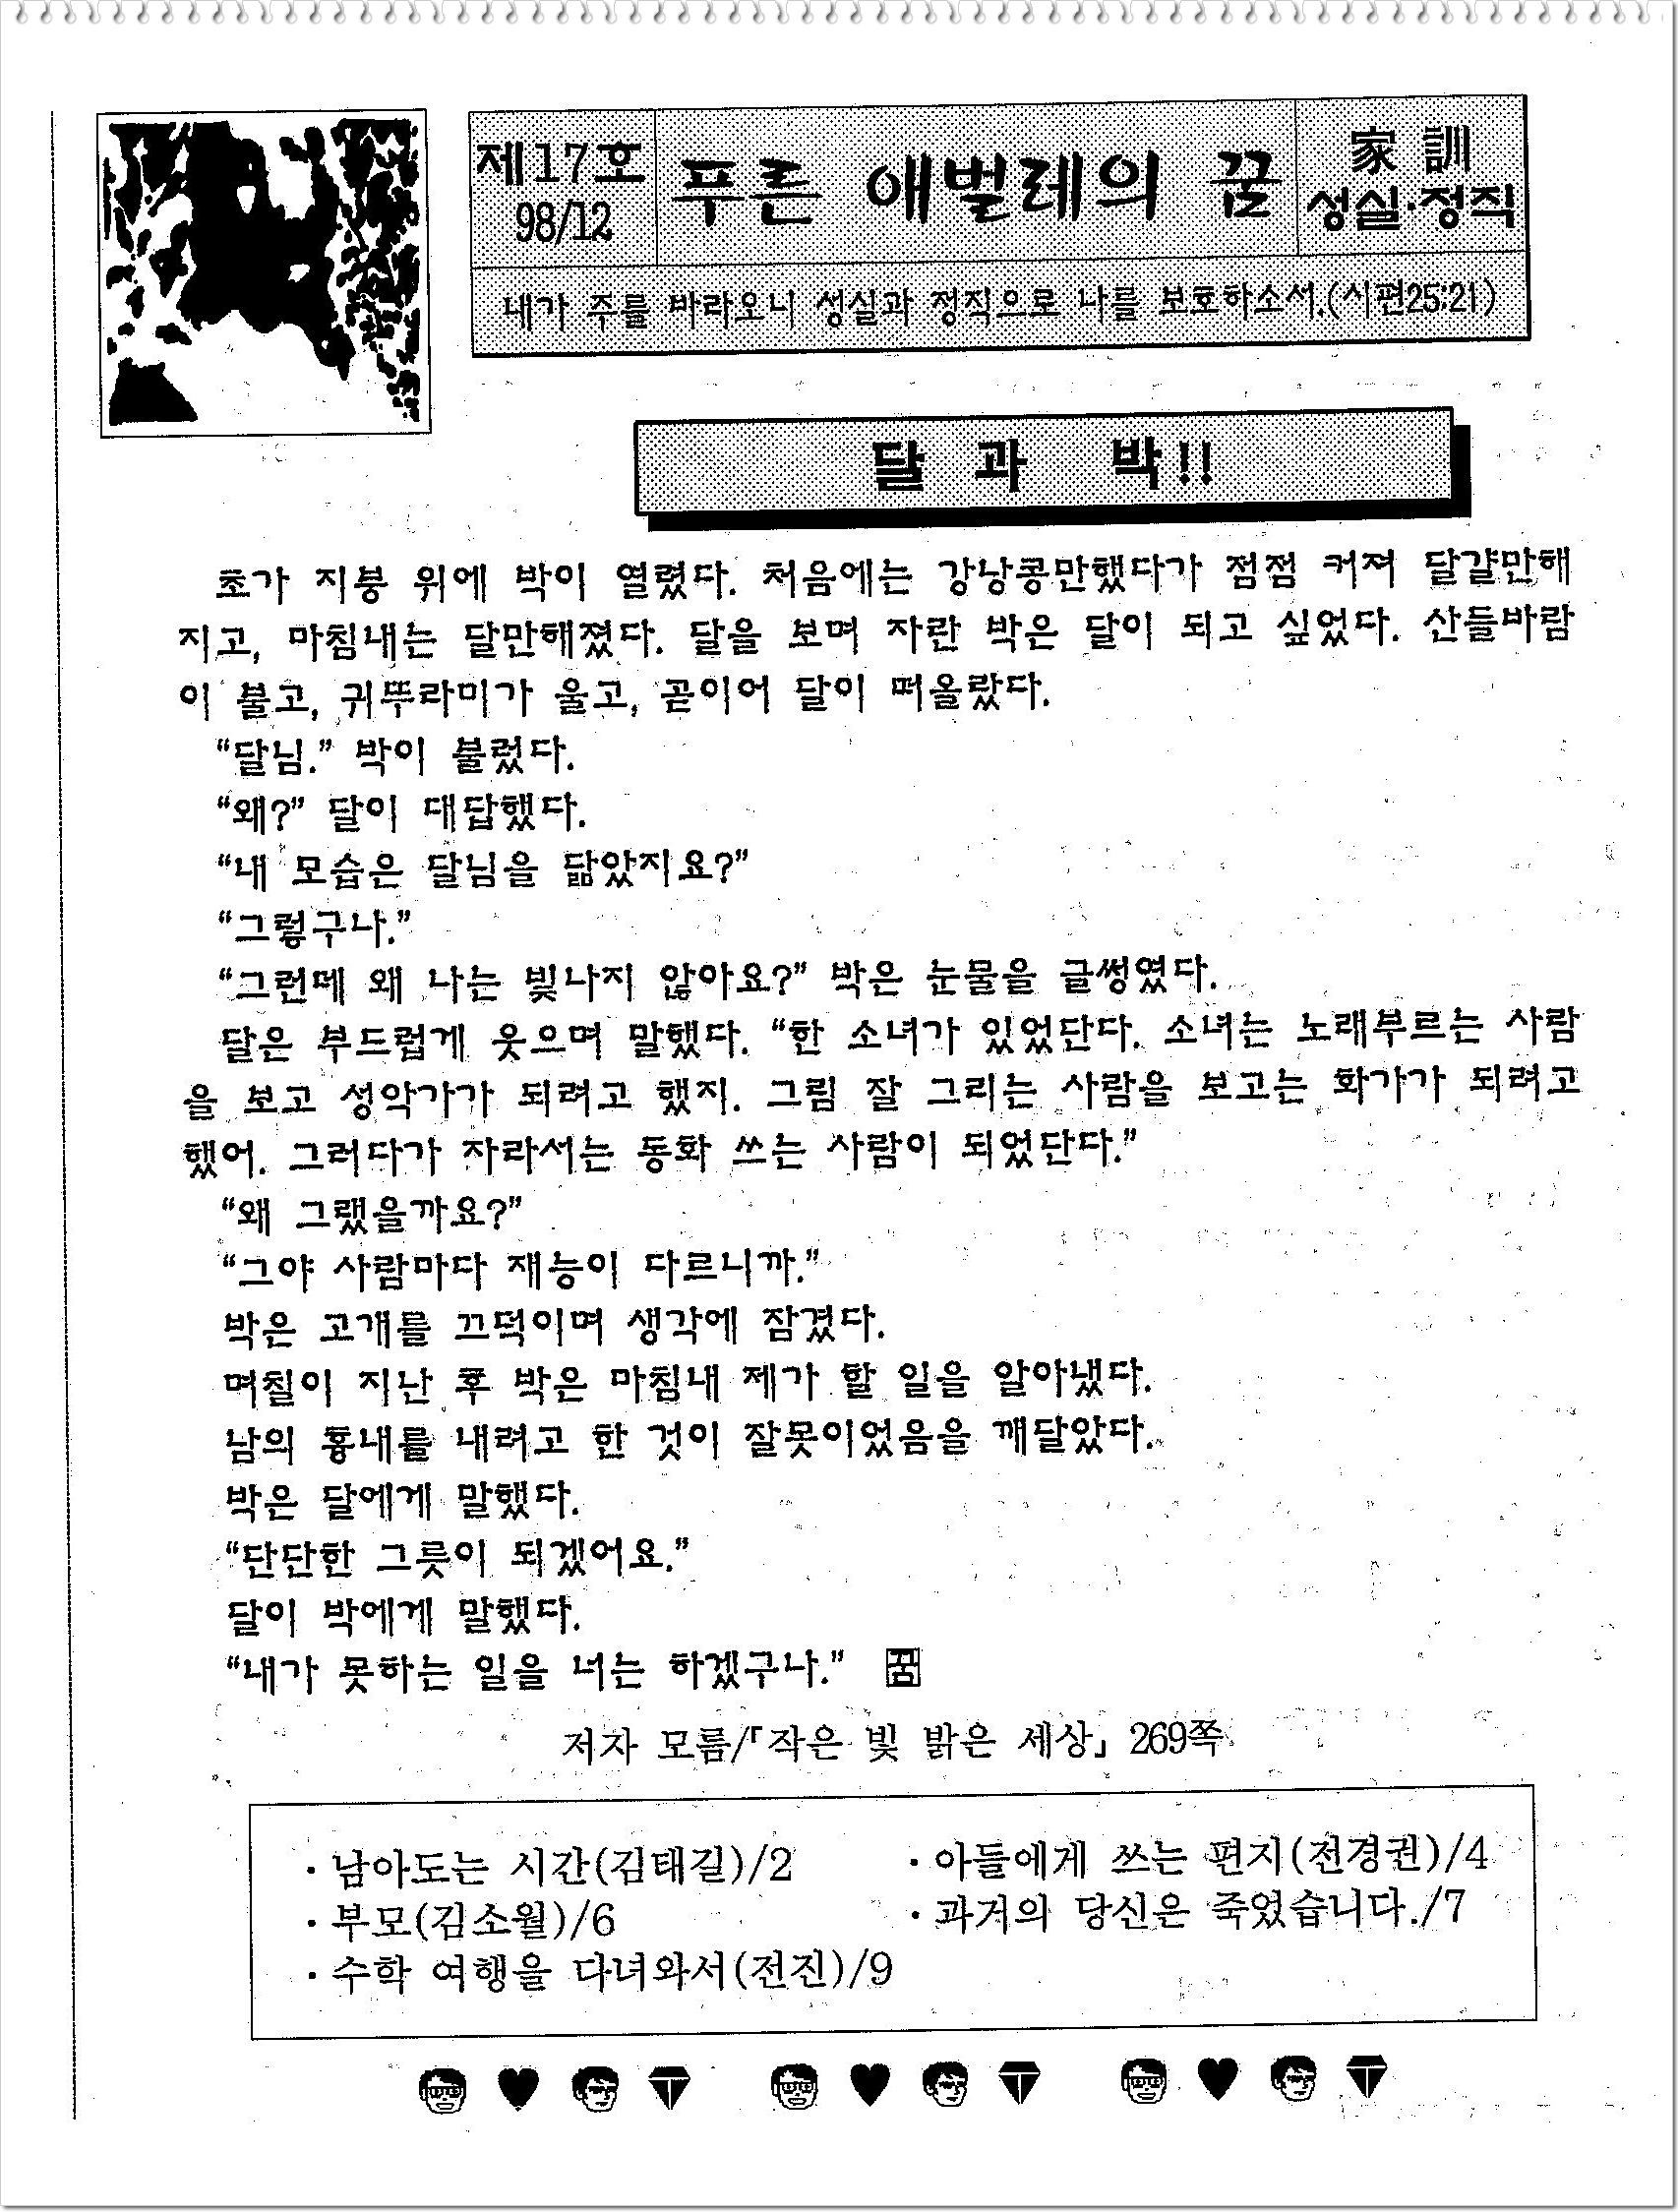 제17호
98/12
푸른 애벌레의 꿈
家 訓
성실·정직
내가 주를 바라오니 성실과 정직으로 나를 보호하소서.(시편25:21)
달 과 박!!
초가 지붕 위에 박이 열렸다. 처음에는 강낭콩만했다가 점점 커져 달걀만해
지고, 마침내는 달만해졌다. 달을 보며 자란 박은 달이 되고 싶었다. 산들바람
이 불고, 귀뚜라미가 울고, 곧이어 달이 떠올랐다.
“달님.” 박이 불렀다.
“왜?” 달이 대답했다.
“내 모습은 달님을 닮았지요?”
“그렇구나.”
“그런데 왜 나는 빛나지 않아요?” 박은 눈물을 글썽였다.
달은 부드럽게 웃으며 말했다. “한 소녀가 있었단다. 소녀는 노래부르는 사람
을 보고 성악가가 되려고 했지. 그림 잘 그리는 사람을 보고는 화가가 되려고
했어. 그러다가 자라서는 동화 쓰는 사람이 되었단다.”
“왜 그랬을까요?”
“그야 사람마다 재능이 다르니까.”
박은 고개를 끄덕이며 생각에 잠겼다.
며칠이 지난 후 박은 마침내 제가 할 일을 알아냈다.
남의 흉내를 내려고 한 것이 잘못이었음을 깨달았다.
박은 달에게 말했다.
“단단한 그릇이 되겠어요.”
달이 박에게 말했다.
“내가 못하는 일을 너는 하겠구나.” 꿈
저자 모름/『작은 빛 밝은 세상』 269쪽
· 남아도는 시간(김태길)/2
· 아들에게 쓰는 편지(전경권)/4
· 부모(김소월)/6
· 과거의 당신은 죽었습니다./7
· 수학 여행을 다녀와서(전진)/9